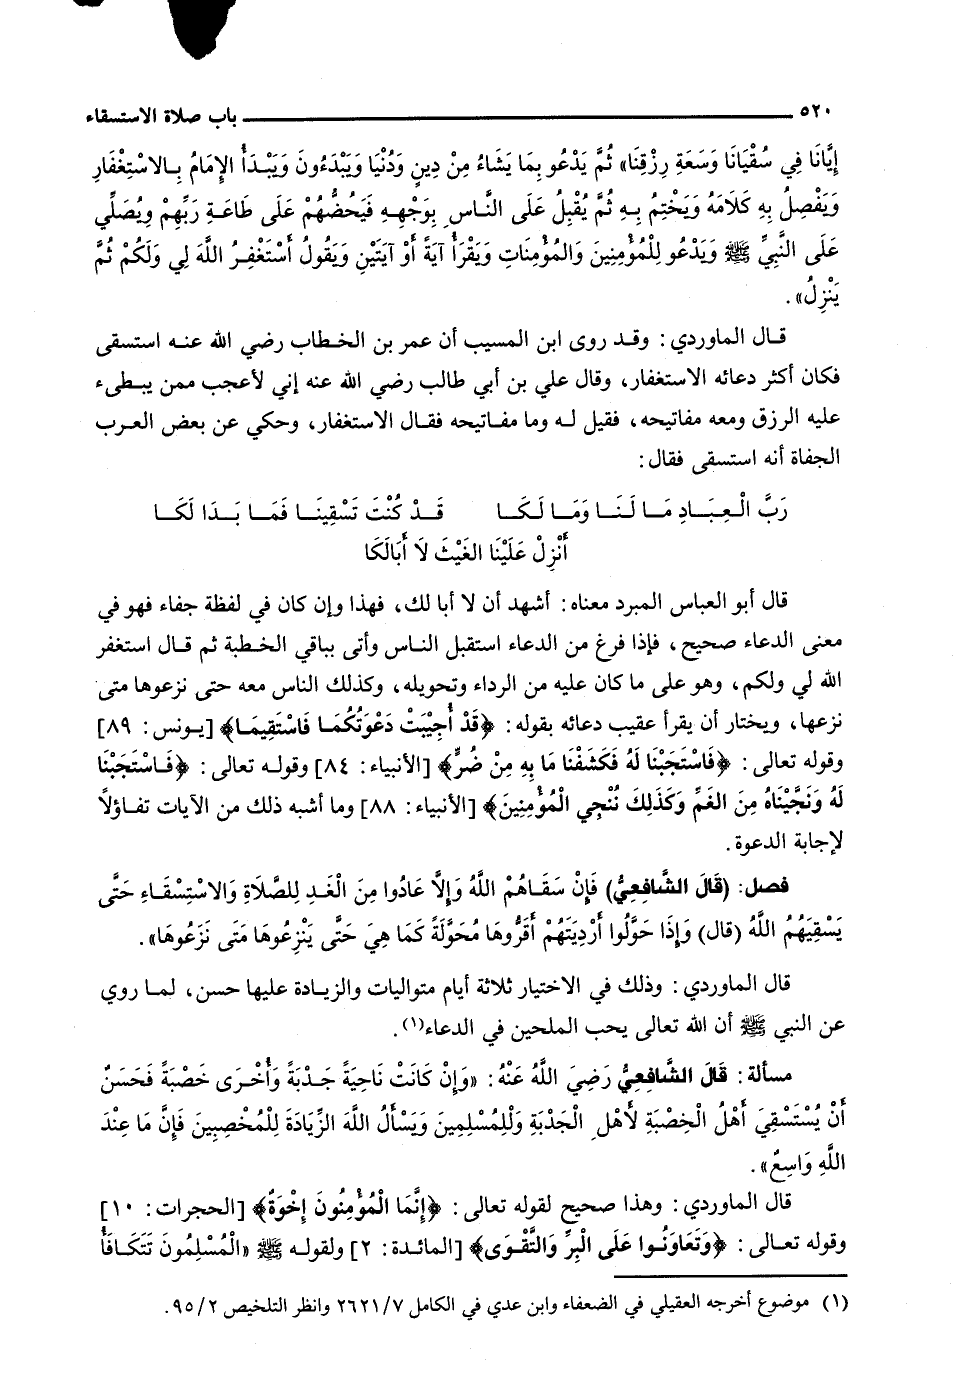 ٥٢٠ باب صلاة الاستسقاء
إِيَّانَا فِي سُقْيَانَا وَسَعَةِ رِزْقِنَا» ثُمَّ يَدْعُو بِمَا يَشَاءُ مِنْ دِينٍ وَدُنْيَا وَيَبْدَءُونَ وَيَبْدَأُ الإِمَامُ بِالاسْتِغْفَارِ
وَيَفْصِلُ بِهِ كَلَامَهُ وَيَخْتِمُ بِهِ ثُمَّ يُقْبِلُ عَلَى النَّاسِ بِوَجْهِهِ فَيَحُضُّهُمْ عَلَى طَاعَةِ رَبِّهِمْ وَيُصَلِّي
عَلَى النَّبِيِّ ﷺ وَيَدْعُو لِلْمُؤْمِنِينَ وَالمُؤْمِنَاتِ وَيَقْرَأُ آيَةً أَوْ آيَتَيْنِ وَيَقُولُ أَسْتَغْفِرُ اللَّهَ لِي وَلَكُمْ ثُمَّ
يَنْزِلُ».
قال الماوردي: وقد روى ابن المسيب أن عمر بن الخطاب رضي الله عنه استسقى
فكان أكثر دعائه الاستغفار، وقال علي بن أبي طالب رضي الله عنه إني لأعجب ممن يبطىء
عليه الرزق ومعه مفاتيحه، فقيل له وما مفاتيحه فقال الاستغفار، وحكي عن بعض العرب
الجفاة أنه استسقى فقال:
رَبَّ الْعِبَادِ مَا لَنَا وَمَا لَكَا قَدْ كُنْتَ تَسْقِينَا فَمَا بَدَا لَكَا
أَنْزِلْ عَلَيْنَا الغَيْثَ لَا أَبَالَكَا
قال أبو العباس المبرد معناه: أشهد أن لا أبا لك، فهذا وإن كان في لفظة جفاء فهو في
معنى الدعاء صحيح، فإذا فرغ من الدعاء استقبل الناس وأتى بباقي الخطبة ثم قال استغفر
الله لي ولكم، وهو على ما كان عليه من الرداء وتحويله، وكذلك الناس معه حتى نزعوها متى
نزعها، ويختار أن يقرأ عقيب دعائه بقوله: ﴿قَدْ أُجِيبَتْ دَعْوَتُكُمَا فَاسْتَقِيمَا﴾ [يونس: ٨٩]
وقوله تعالى: ﴿فَاسْتَجَبْنَا لَهُ فَكَشَفْنَا مَا بِهِ مِنْ ضُرٍّ﴾ [الأنبياء: ٨٤] وقوله تعالى: ﴿فَاسْتَجَبْنَا
لَهُ وَنَجَّيْنَاهُ مِنَ الغَمِّ وَكَذَلِكَ نُنْجِي الْمُؤْمِنِينَ﴾ [الأنبياء: ٨٨] وما أشبه ذلك من الآيات تفاؤلاً
لإجابة الدعوة.
فصل: (قَالَ الشَّافِعِيُّ) فَإِنْ سَقَاهُمْ اللَّهُ وَإِلَّا عَادُوا مِنَ الْغَدِ لِلصَّلَاةِ وَالاسْتِسْقَاءِ حَتَّى
يَسْقِيَهُمُ اللَّهُ (قال) وَإِذَا حَوَّلُوا أَرْدِيَتَهُمْ أَقَرُّوهَا مُحَوَّلَةً كَمَا هِيَ حَتَّى يَنْزِعُوهَا مَتَى نَزَعُوهَا».
قال الماوردي: وذلك في الاختيار ثلاثة أيام متواليات والزيادة عليها حسن، لما روي
عن النبي ﷺ أن الله تعالى يحب الملحين في الدعاء(١).
مسألة: قَالَ الشَّافِعِيُّ رَضِيَ اللَّهُ عَنْهُ: «وَإِنْ كَانَتْ نَاحِيَةً جَدْبَةً وَأُخْرَى خَصْبَةً فَحَسَنٌ
أَنْ يُسْتَسْقِيَ أَهْلُ الْخِصْبَةِ لأَهْلِ الْجَدْبَةِ وَلِلْمُسْلِمِينَ وَيَسْأَلُ اللَّهَ الزِّيَادَةَ لِلْمُخْصِبِينَ فَإِنَّ مَا عِنْدَ
اللَّهِ وَاسِعٌ».
قال الماوردي: وهذا صحيح لقوله تعالى: ﴿إِنَّمَا الْمُؤْمِنُونَ إِخْوَةٌ﴾ [الحجرات: ١٠]
وقوله تعالى: ﴿وَتَعَاوَنُوا عَلَى الْبِرِّ وَالتَّقْوَى﴾ [المائدة: ٢] ولقوله ﷺ «الْمُسْلِمُونَ تَتَكَافَأُ
(١) موضوع أخرجه العقيلي في الضعفاء وابن عدي في الكامل ٢٦٢١/٧ وانظر التلخيص ٩٥/٢.